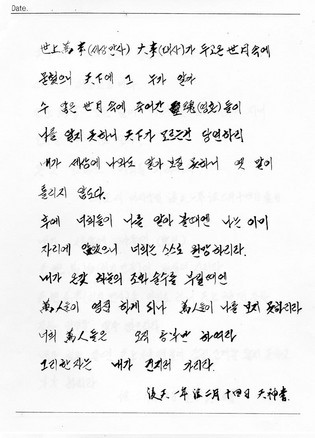 Date.
世上萬事(세상만사) 大事(대사)가 두고온 世月속에
묻혔으니 天下에 그 누가 알아
수 많은 世月속에 죽어간 靈魂(영혼)들이
나를 알지 못하니 天下가 모르는건 당연하리
내가 세상에 나와도 알아 보질 못하니 옛 말이
틀리지 않도다.
후에 너희들이 나를 알아 볼때엔 나는 이미
자리에 없으니 너희는 스스로 원망하리라.
내가 온갖 하늘의 조화술수를 부릴때엔
萬人들이 영문 하게 되나 萬人들이 나를 보지 못하리라
너희 萬人들은 오직 공부만 하여라
그리한자는 내가 건지러 가리라.
後天 一年 二月 十四日 天神書.